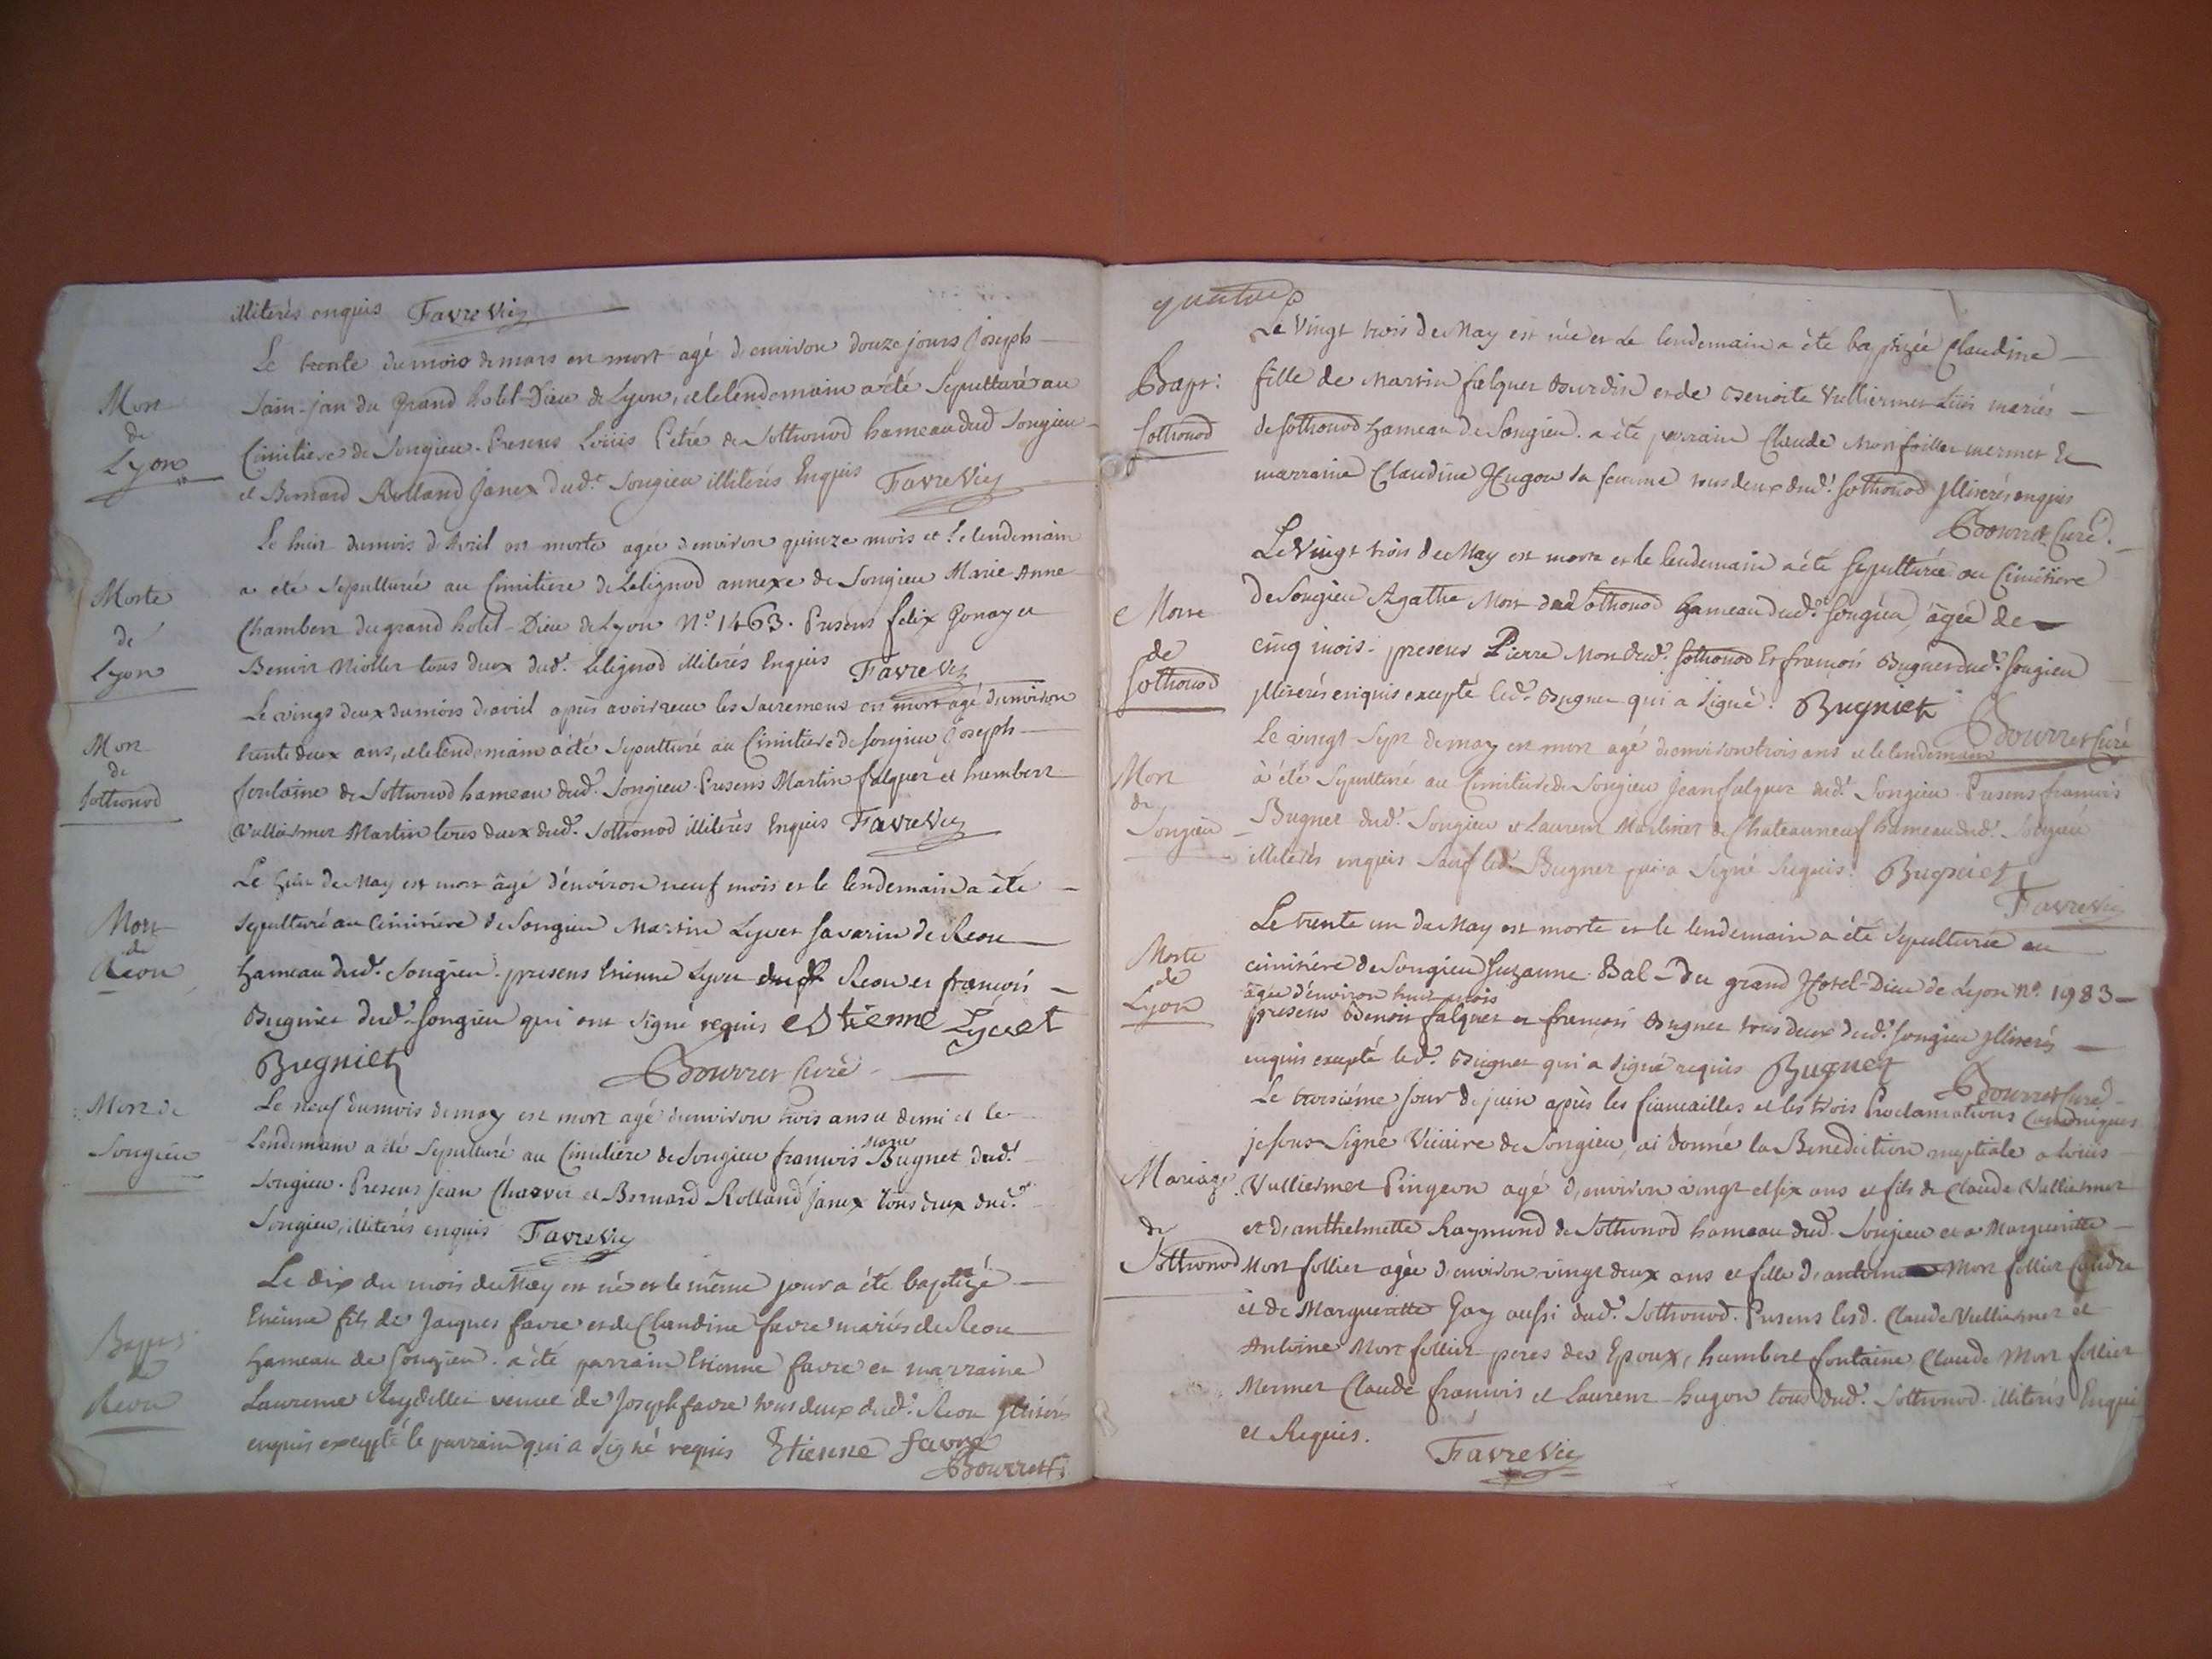 illiterés enquis Favre Vic
Le trente du mois de mars est mort agé d'environ douze jours Joseph
Mort
de
Lyon
Sain-jan du Grand hotel-Dieu de Lyon, et le lendemain a été Sepulturé au
Cimitiere de Songieu. Presens Loüis Petré de Sothonod hameau dud Songieu
et Bernard Rolland Janex dud.t Songieu illiterés Enquis Favre Vic
Le huit du mois d'Avril est morte agée d'environ quinze mois et le lendemain
Morte
de
Lyon
a été Sepulturée au Cimitiere de Lelignod annexe de Songieu Marie Anne
Chambert du grand hotel-Dieu de Lyon N.o 1463. Presens felix Gonay et
Benoit Niollet tous deux dud.t Lelignod illiterés Enquis Favre Vic
Le vingt deux du mois d'avril après avoir reçu les Sacremens est mort agé d'environ
Mort
de
Sothonod
trente deux ans, et le lendemain a été Sepulturé au Cimitiere de Songieu Joseph
fontaine de Sothonod hameau dud. Songieu. Presens Martin falquet et humbert
Vulliermet Martin tous deux dud.t Sothonod illiterés Enquis Favre Vic
Le huit de May est mort âgé d'environ neuf mois et le lendemain a été
Mort
de
Reou
Sepulturé au Cimitière de Songieu Martin Lyvet Savarin de Reou
hameau dud.t Songieu. presens Etienne Lyvet dud.t Reou et françois
Bugniet dud.t Songieu qui ont signé requis Etienne Lyvet
Bugniet Bourret Curé
Mort de
Songieu
Le neuf du mois de may est mort agé d'environ trois ans et demi et le
lendemain a été Sepulturé au Cimitière de Songieu françois Marie Bugnet dud.t
Songieu. Presens Jean Charvet et Bernard Rolland Janex tous deux dud.t
Songieu, illiterés enquis Favre Vic
Le dix du mois de May est né et le même jour a été baptizé
Bapt:
de
Reou
Etienne fils de Jacques favre et de Claudine favre mariés de Reou
hameau de Songieu. a été parrain Etienne favre et marraine
Laurence Reydellet veuve de Joseph favre tous deux dud.t Reou Illiterés
enquis excepté le parrain qui a signé requis Etienne favre
Bourret C
quatre
Le Vingt trois de May est née et le lendemain a été baptizée Claudine
Bapt:
Sothonod
fille de Martin falquet Bourdin et de Benoite Vulliermet Luis mariés
de Sothonod hameau de Songieu. a été parrain Claude Mort follier mermet Et
marraine Claudine Hugon sa femme tous deux dud.t Sothonod Illiterés enquis
Bourret Curé.
Le Vingt trois de May est morte et le lendemain a été sepulturée au Cimitière
Morte
de
Sothonod
de Songieu Agathe Mort dud Sothonod hameau dud.t Songieu, âgée de
cinq mois. presens Pierre Mort dud.t Sothonod Et françois Bugniet dud.t Songieu
Illiterés enquis excepté led.t Bugnet qui a signé. Bugniet
Bourret Curé
Le vingt Sept de may est mort agé d'environ trois ans et le lendemain
Mort
de
Songieu
a été Sepulturé au Cimitiere de Songieu Jean falquet dud.t Songieu. Presens françois
Bugnet dud.t Songieu et Laurent Martinet de Chateauneuf hameau dud.t Songieu
illiterés enquis Sauf led.t Bugnet qui a Signé Requis. Bugniet
Favre Vic
Le trente un de May est morte et le lendemain a été Sepulturée au
Morte
de
Lyon
cimitière de Songieu Suzanne Bal du grand Hotel-Dieu de Lyon N.o 1983
âgée d'environ huit mois
presens Benoit falquet et françois Bugnet tous deux dud.t Songieu Illiterés
enquis excepté led.t Bugnet qui a signé requis Bugnet
Bourret Curé
Le troisiéme jour de juin après les fiançailles et les trois Proclamations Canoniques
je sous Signé Vicaire de Songieu, ai donné la Benediction nuptiale a Loüis
Mariage
de
Sothonod
Vulliermet Pingeon agé d'environ vingt et six ans et fils de Claude Vulliermet
et d'anthelmette Raymond de Sothonod hameau dud. Songieu et a Margueritte
Mort follier agée d'environ vingt deux ans et fille d'antoine Mort follier Caidre
et de Margueritte Gay aussi dud.t Sothonod. Presens lesd. Claude Vulliermet et
Antoine Mort follier peres des Epoux, humbert fontaine, Claude Mort follier
Mermet Claude françois et Laurent hugon tous dud.t Sothonod illiterés Enquis
et Requis. Favre Vic